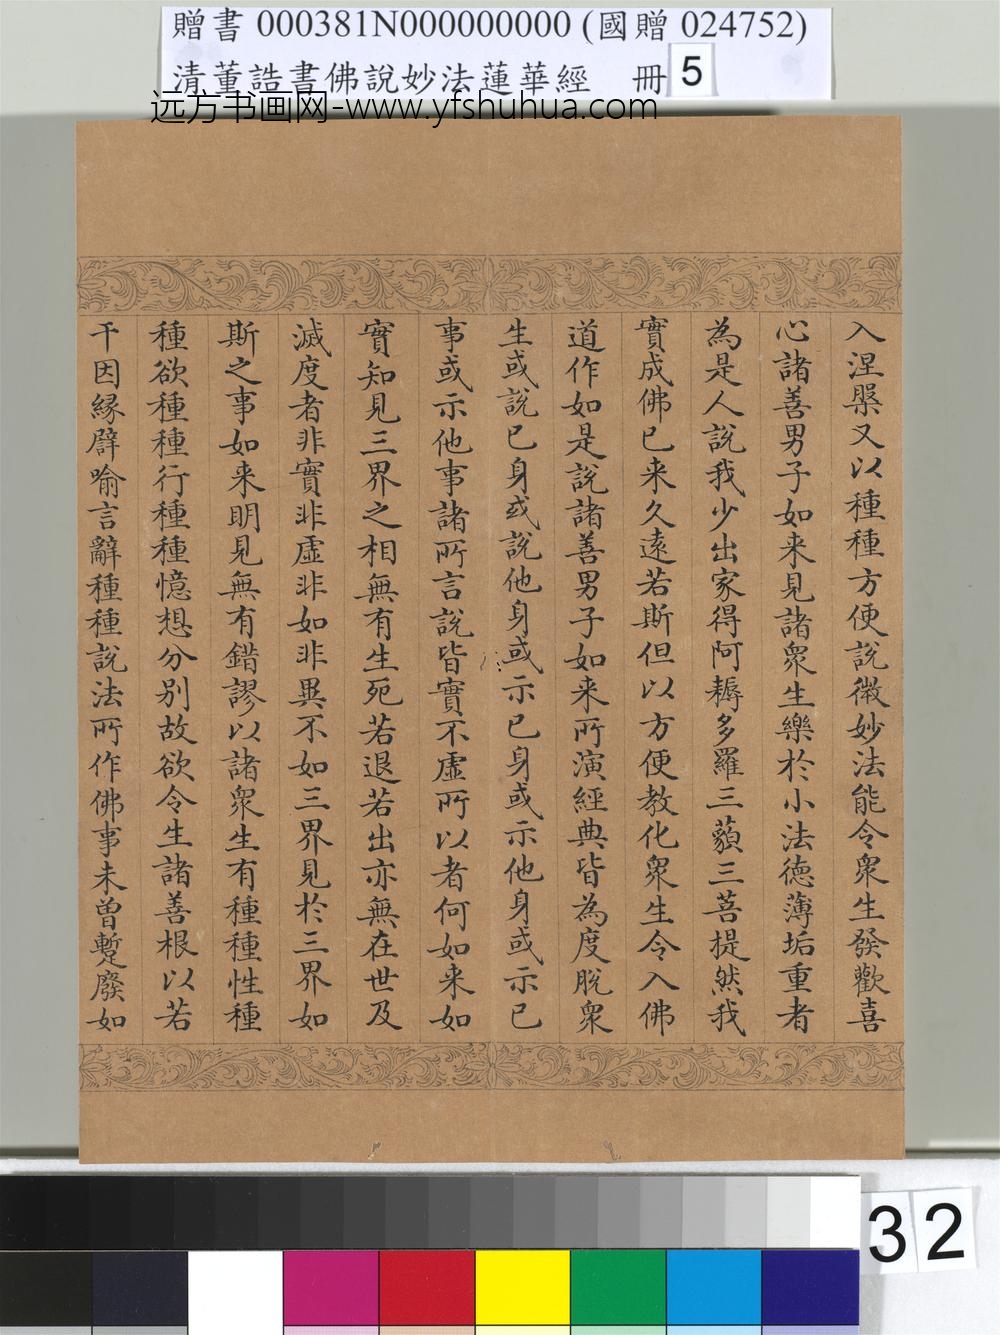 贈書 000381N000000000 (國贈 024752)
清董誥書佛說妙法蓮華經 冊 5
远方书画网-www.yfshuhua.com
入涅槃又以種種方便說微妙法能令衆生發歡喜
心諸善男子如来見諸衆生樂於小法德薄垢重者
為是人說我少出家得阿耨多羅三藐三菩提然我
實成佛已来久遠若斯但以方便教化衆生令入佛
道作如是說諸善男子如来所演經典皆為度脫衆
生或說已身或說他身或示已身或示他身或示已
事或示他事諸所言說皆實不虛所以者何如来如
實知見三界之相無有生死若退若出亦無在世及
滅度者非實非虛非如非異不如三界見於三界如
斯之事如来明見無有錯謬以諸衆生有種種性種
種欲種種行種種憶想分別故欲令生諸善根以若
干因緣辟喻言辭種種說法所作佛事未曾蹔廢如
32